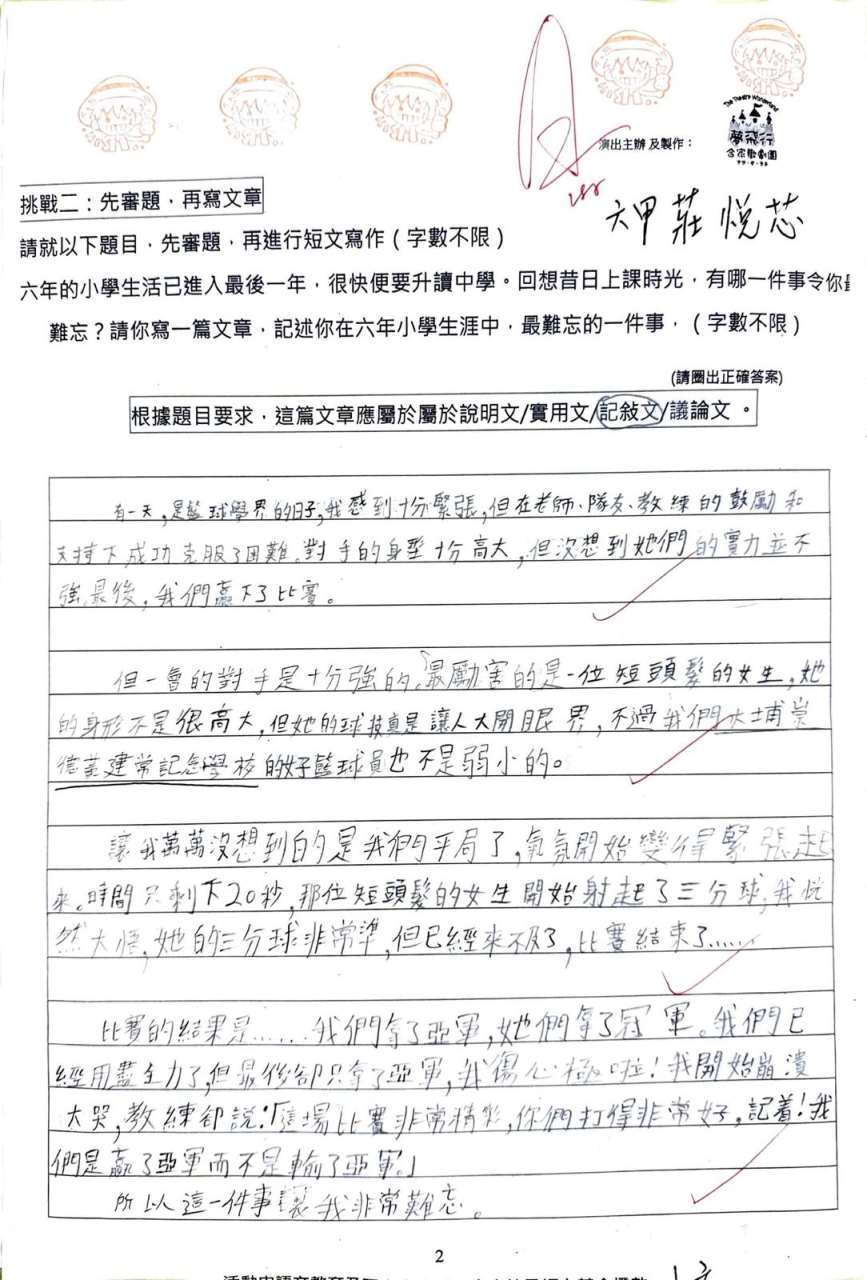 The Theatre Wonderland
夢飛行
合家歡劇團
演出主辦及製作：
六甲 莊悅芯
挑戰二：先審題，再寫文章
請就以下題目，先審題，再進行短文寫作（字數不限）
六年的小學生活已進入最後一年，很快便要升讀中學。回想昔日上課時光，有哪一件事令你最
難忘？請你寫一篇文章，記述你在六年小學生涯中，最難忘的一件事，（字數不限）
(請圈出正確答案)
根據題目要求，這篇文章應屬於屬於說明文/實用文/記敍文/議論文 。
有一天，是籃球學界的日子，我感到十份緊張，但在老師、隊友、教練的鼓勵和
支持下成功克服了困難。對手的身型十分高大，但沒想到她們的實力並不
強。最後，我們贏下了比賽。
但一會的對手是十分強的。最勵害的是一位短頭髮的女生，她
的身形不是很高大，但她的球技真是讓人大開眼界，不過我們大埔崇
德黃建常記念學校的好籃球員也不是弱小的。
讓我萬萬沒想到的是我們平局了，氣氛開始變得緊張起
來。時間只剩下20秒，那位短頭髮的女生開始射起了三分球，我恍
然大悟，她的三分球非常準，但已經來不及了，比賽結束了……
比賽的結果是……我們拿了亞軍，她們拿了冠軍。我們已
經用盡全力了，但最後卻只拿了亞軍，我傷心極啦！我開始崩潰
大哭，教練卻說：「這場比賽非常精彩，你們打得非常好，記着！我
們是贏了亞軍而不是輸了亞軍。」
所以這一件事讓我非常難忘。
2